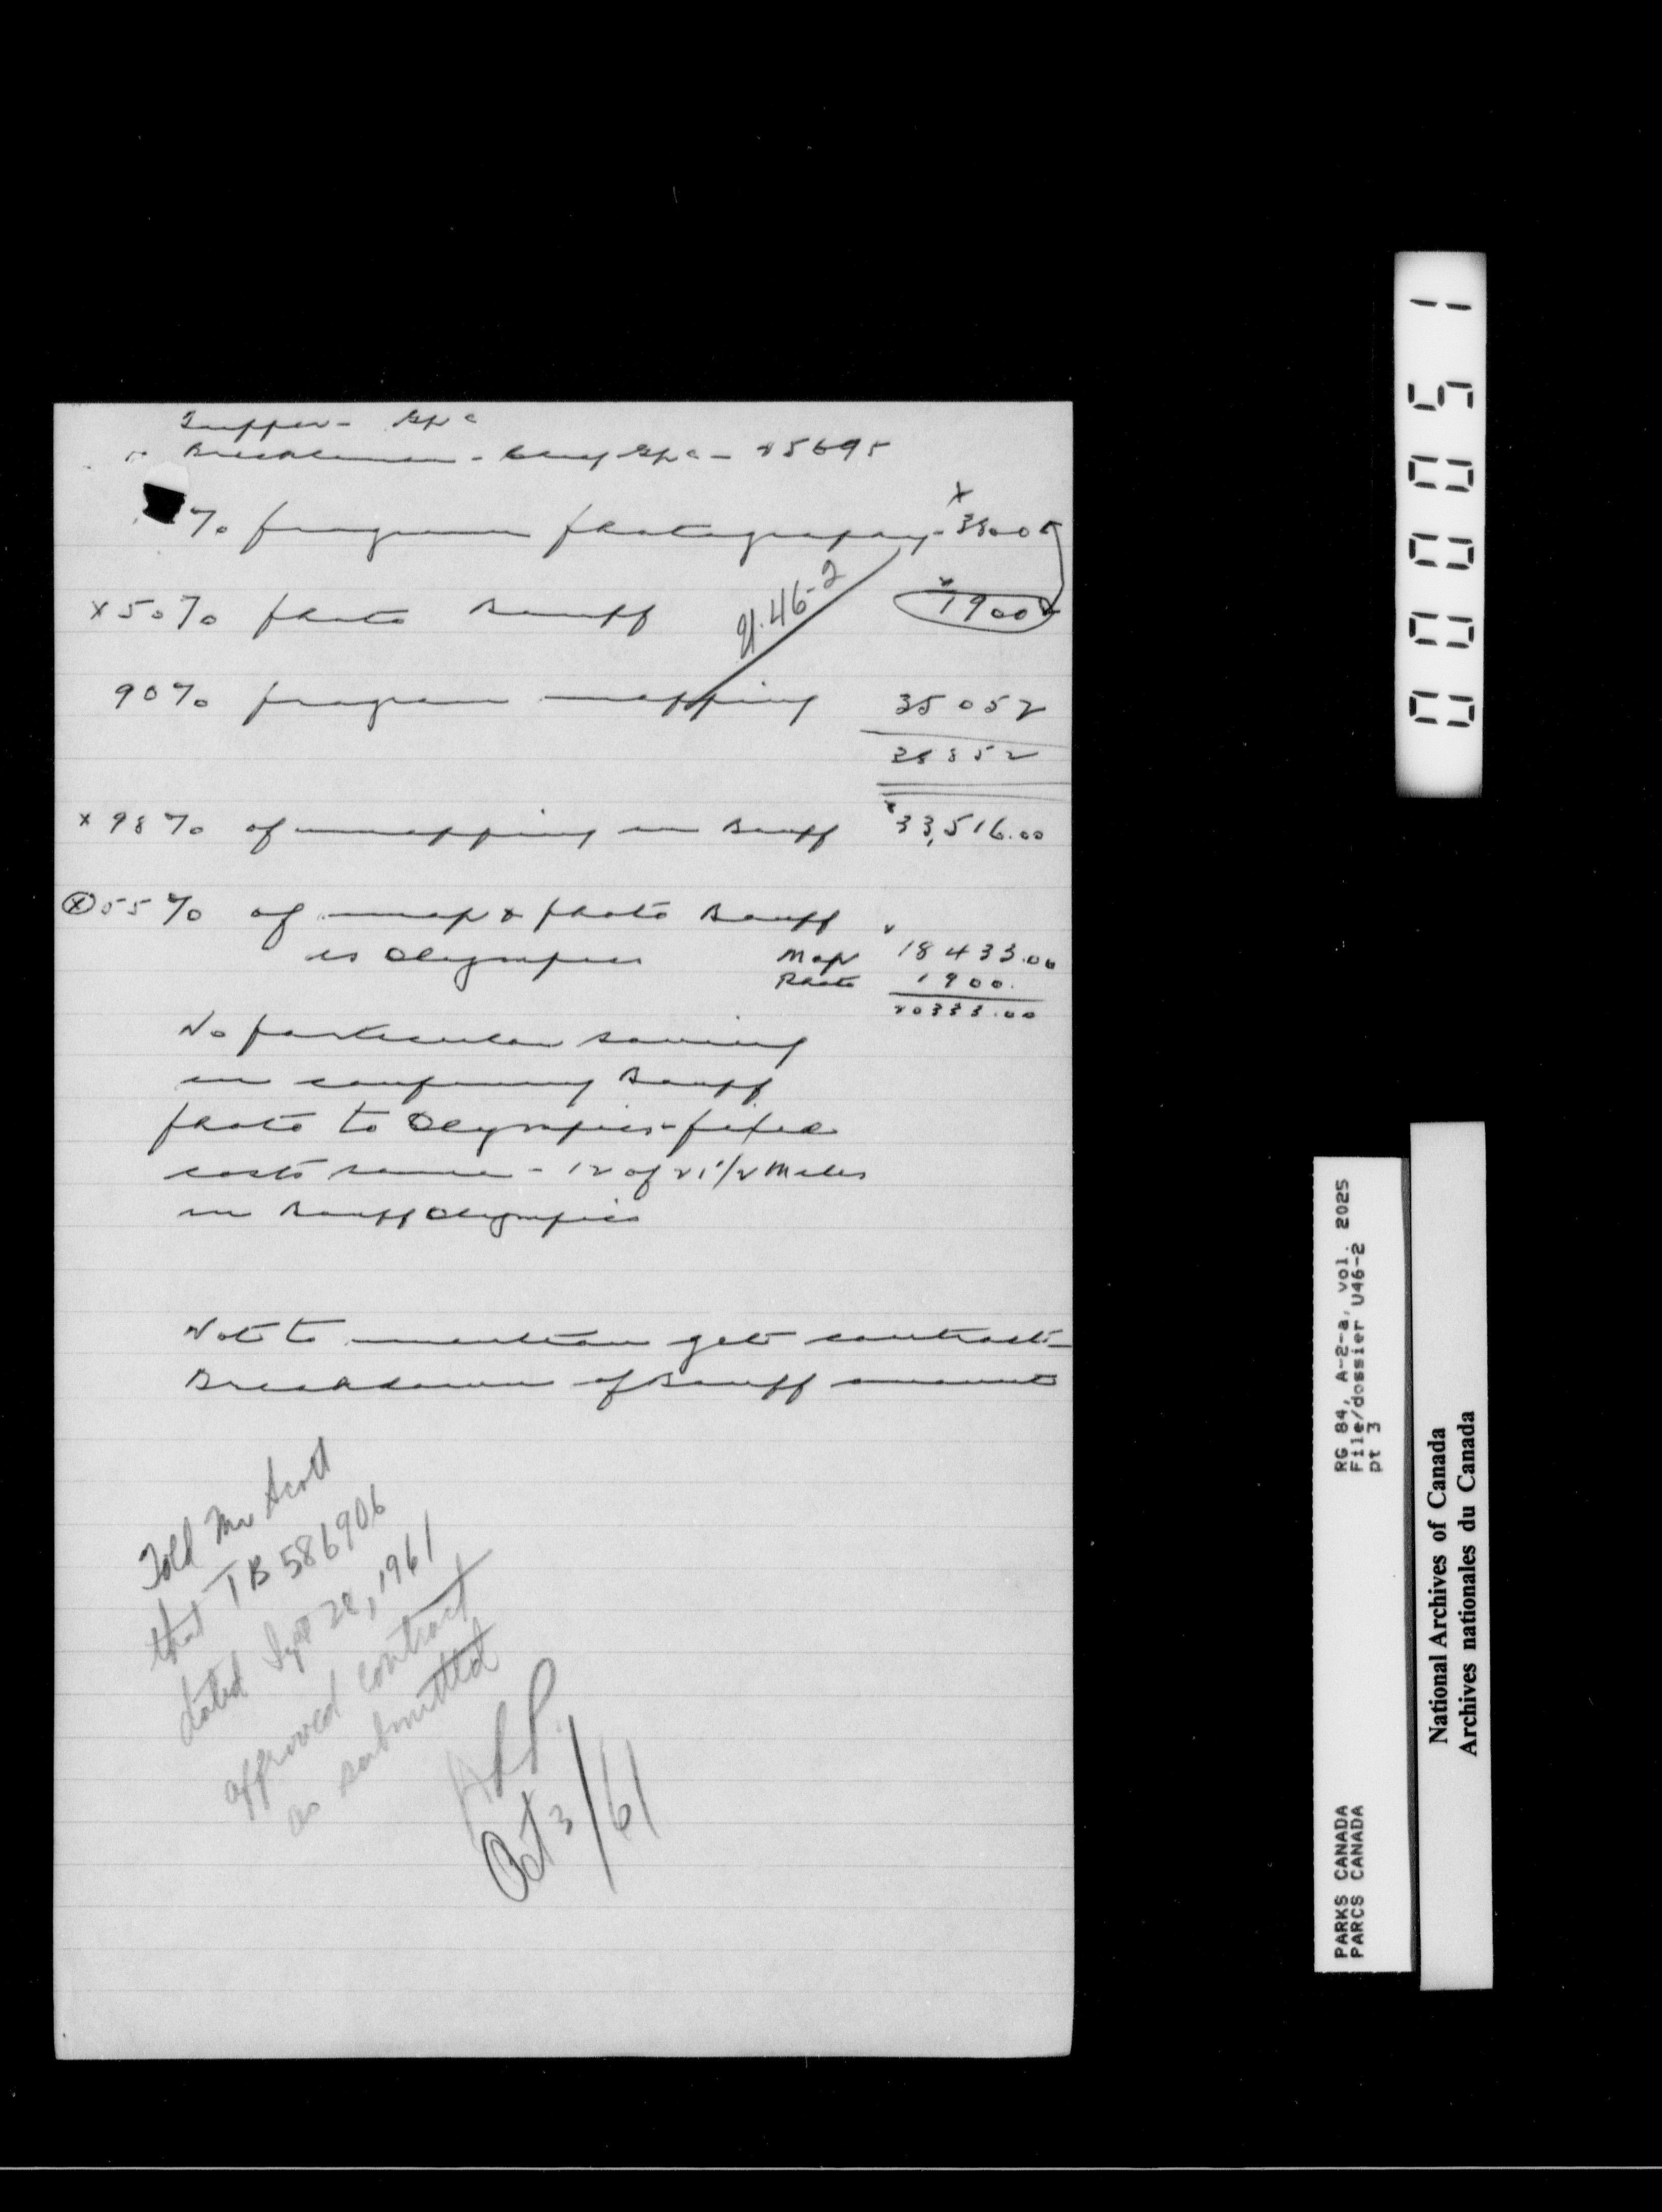 - 25695
% program photography - 3800
x 50% photo Banff 1900
U.46-2
90% program mapping 35052
38852
x 98% of mapping in Banff 33,516.00
x 55% of map & photo Banff
is Olympics Map 18433.00
Photo 1900.
20333.00
No particular saving
in confining Banff
photo to Olympics - fixed
costs same - 12 of 21 1/2 Miles
in Banff Olympics
Not to mention get contract -
Breakdown of Banff amount
Told Mr Scott
that TB 586906
dated Sept 28, 1961
approved contract
as submitted
Oct 3/61
000051
RG 84, A-2-a, vol. 2025
File/dossier U46-2
pt 3
PARKS CANADA
PARCS CANADA
National Archives of Canada
Archives nationales du Canada